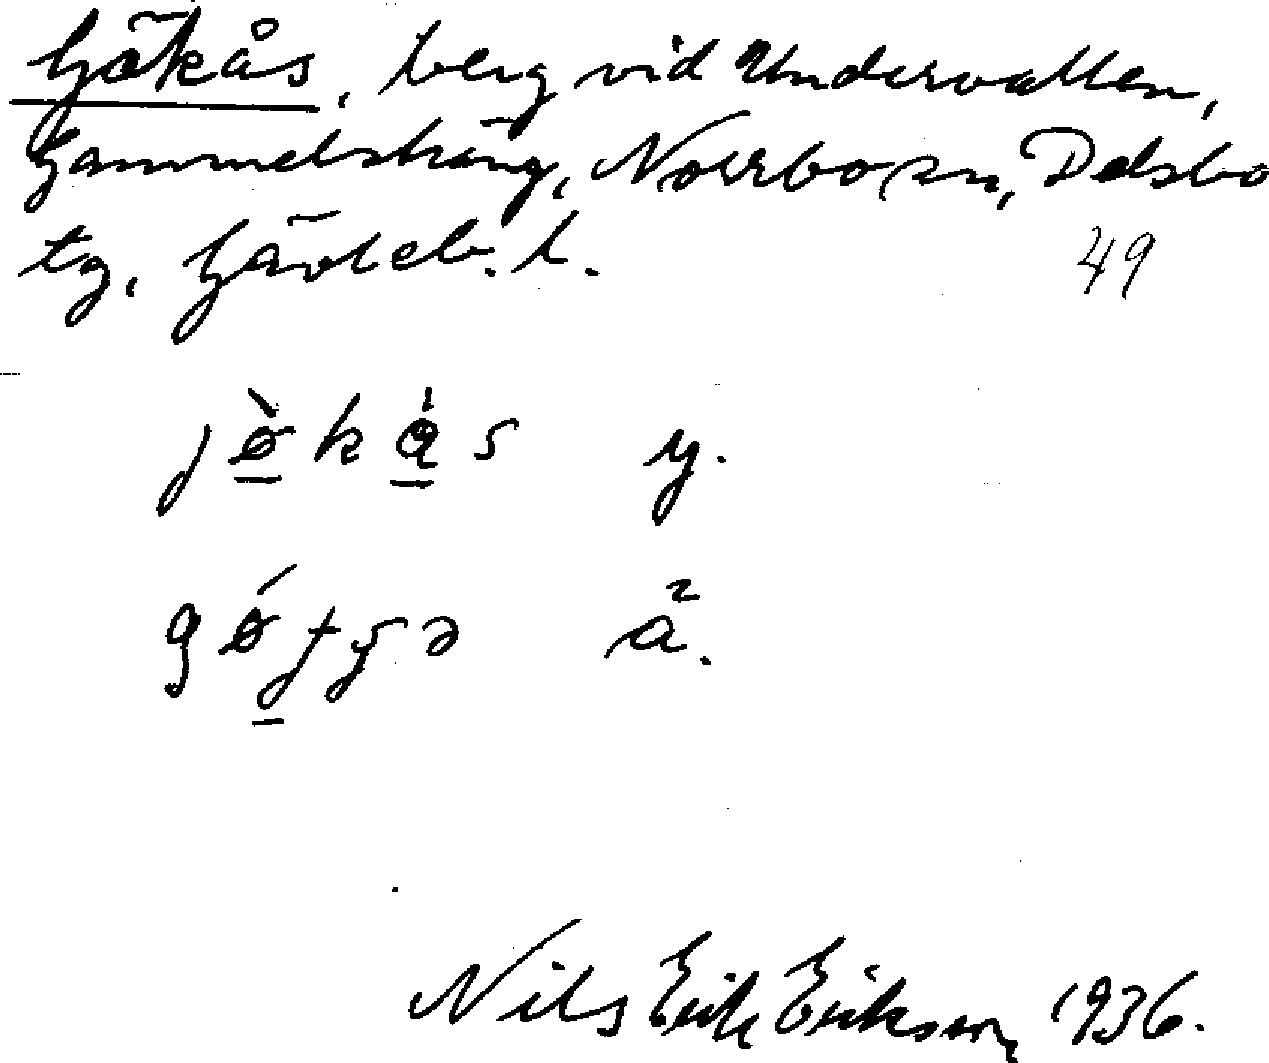 Gökås, berg vid Undervallen,
Gammelsträng, Norrbo sn, Delsbo
tg, Gävleb. l.
49
jö̀kås y.
gö́tjə ä.
Nils Erik Erikson, 1936.